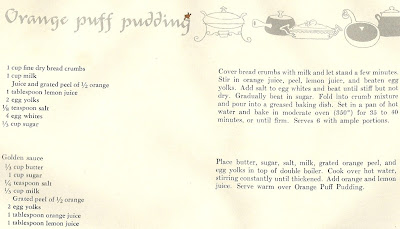 Orange puff pudding
1 cup fine dry bread crumbs
1 cup milk
Juice and grated peel of ½ orange
1 tablespoon lemon juice
2 egg yolks
⅛ teaspoon salt
4 egg whites
⅓ cup sugar
Cover bread crumbs with milk and let stand a few minutes.
Stir in orange juice, peel, lemon juice, and beaten egg
yolks. Add salt to egg whites and beat until stiff but not
dry. Gradually beat in sugar. Fold into crumb mixture
and pour into greased baking dish. Set in a pan of hot
water and bake in moderate oven (350°) for 35 to 40
minutes, or until firm. Serves 6 with ample portions.
Golden sauce
⅓ cup butter
1 cup sugar
¼ teaspoon salt
⅓ cup milk
Grated peel of ½ orange
2 egg yolks
1 tablespoon orange juice
1 tablespoon lemon juice
Place butter, sugar, salt, milk, grated orange peel, and
egg yolks in top of double boiler. Cook over hot water,
stirring constantly until thickened. Add orange and lemon
juice. Serve warm over Orange Puff Pudding.